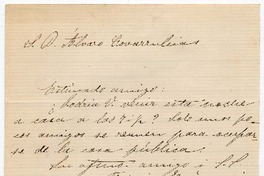 S. D. Alvaro Covarrubias
Estimado amigo:
Podria U. venir esta noche
a casa a las 7 p? Solo unos po
cos amigos se reunen para ocupar
se de la casa pública.
Su afmo. amigo i S. S.